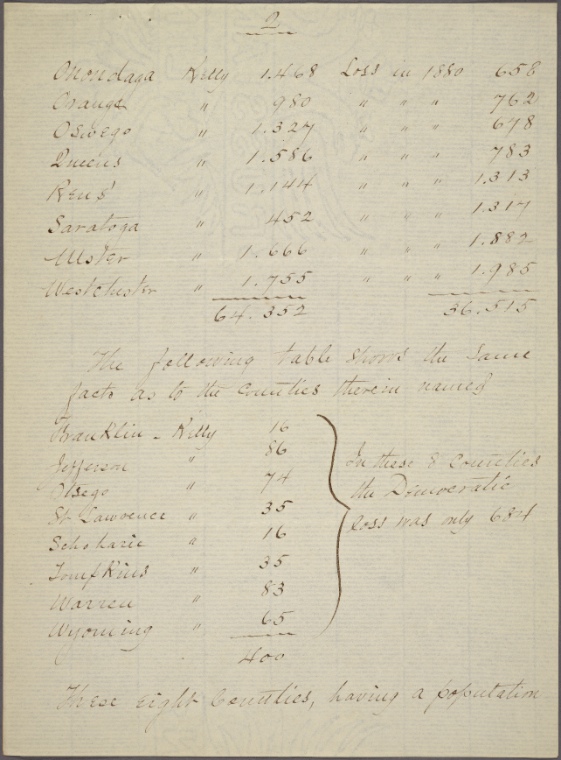 2
Onondaga Kelly 1.468 Loss in 1880 658
Orange " 980 " " " 762
Oswego " 1.327 " " " 678
Queens " 1.586 " " " 783
Rens' " 1.144 " " " 1.313
Saratoga " 452 " " " 1.317
Ulster " 1.666 " " " 1.882
Westchester " 1.755 " " " 1.985
64.352 36.515
The following table shows the same
facts as to the Counties therein named
Franklin - Kelly 16
Jefferson " 86
Otsego " 74
St Lawrence " 35
Schoharie " 16
Tompkins " 35
Warren " 83
Wyoming " 65
400
In these 8 Counties
the Democratic
Loss was only 684
These eight Counties, having a population